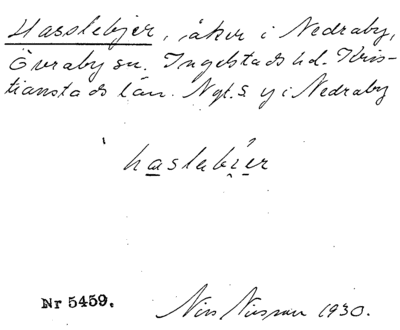 Hasslebjer, åker i Nedraby,
Övraby sn. Ingelstads hd. Kris-
tianstads län. Ngt. S y i Nedraby
haslebier
Nr 5459.
Nils Nilsson 1930.